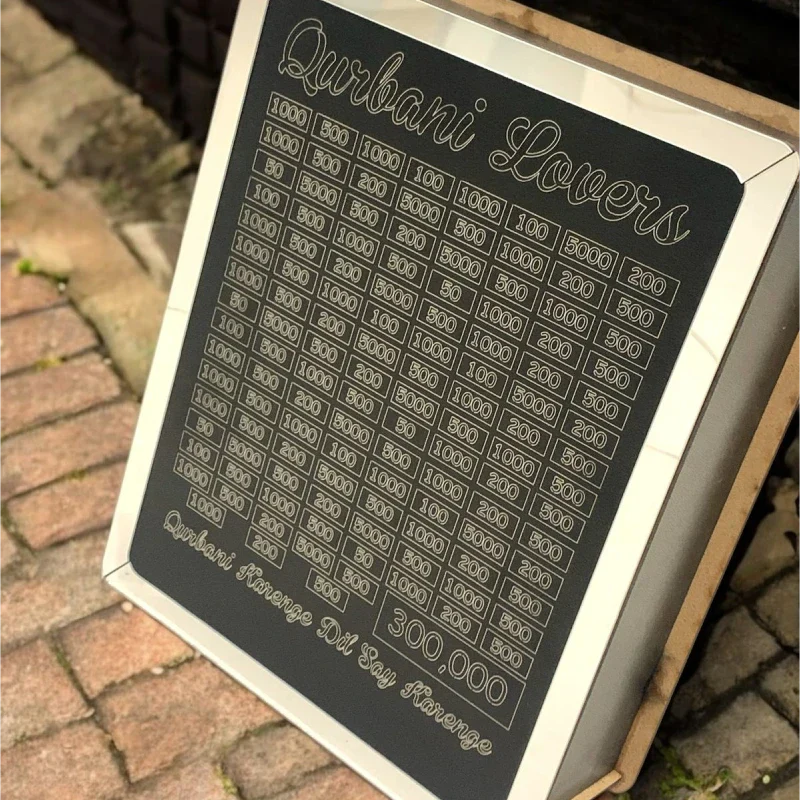 Qurbani Lovers
1000 500 1000 100 1000 100 5000 200
1000 500 200 5000 500 1000 200 500
50 5000 500 200 5000 500 1000 500
100 500 1000 500 50 1000 200 500
1000 500 200 5000 500 1000 200 500
1000 500 1000 100 1000 100 5000 200
1000 500 200 5000 500 1000 200 500
50 5000 500 200 5000 500 1000 500
100 500 1000 500 50 1000 200 500
1000 500 200 5000 500 1000 200 500
1000 500 1000 100 1000 100 5000 200
1000 500 200 5000 500 1000 200 500
50 5000 500 200 5000 500 1000 500
100 500 1000 500 50 1000 200 500
1000 500 200 5000 500
1000 200 500 300,000
Qurbani Karenge Dil Say Karenge